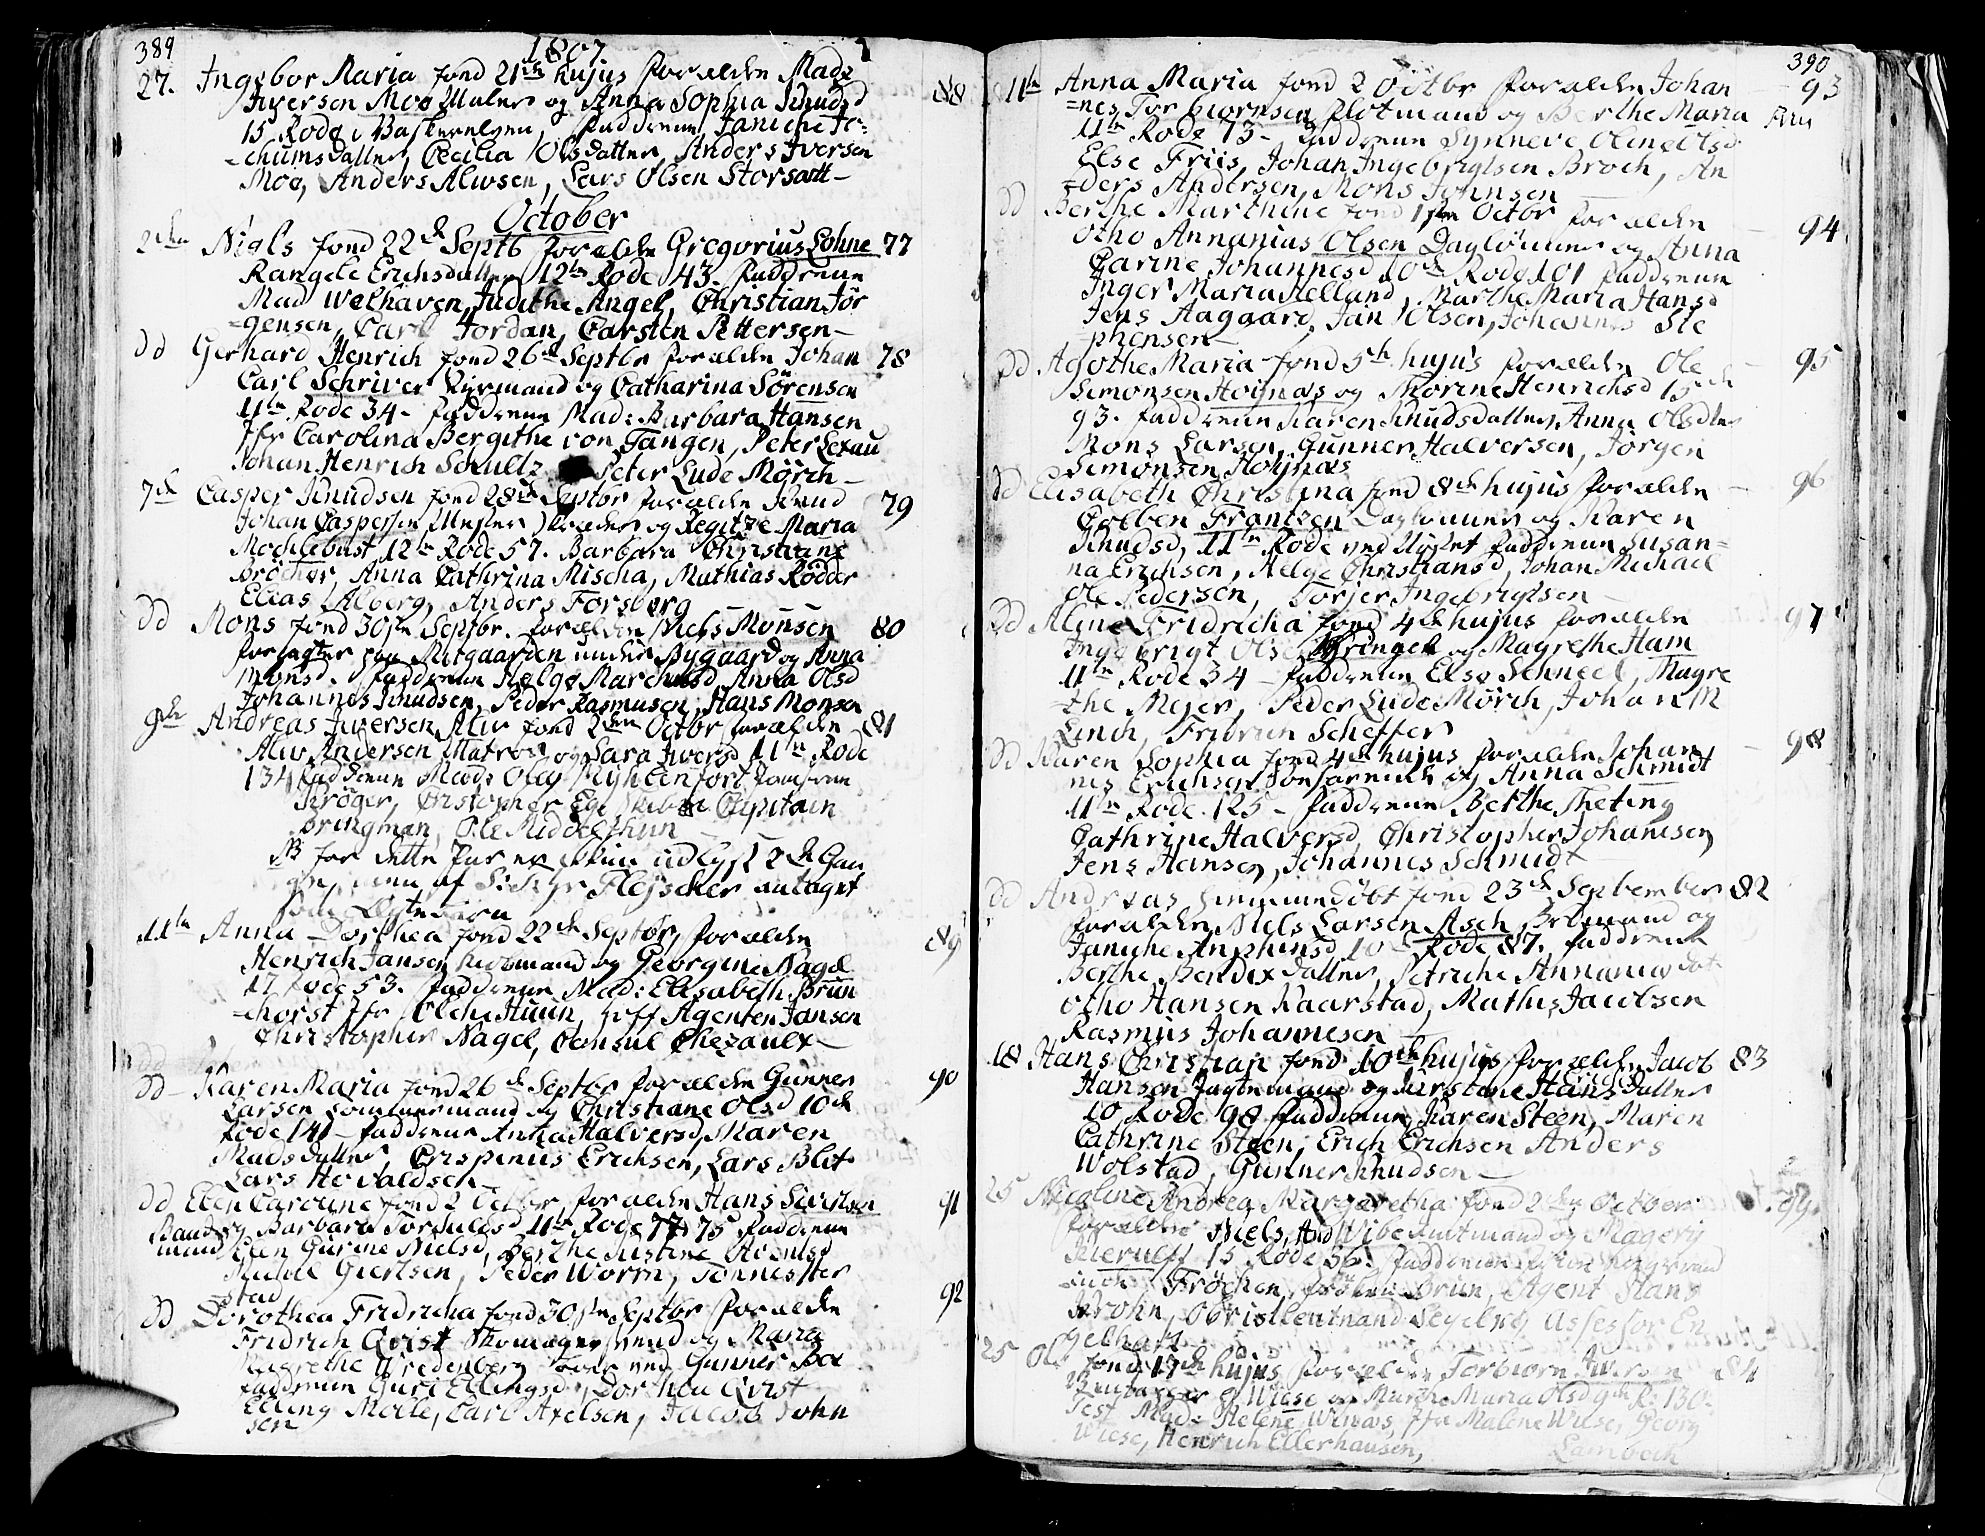 389
1807
27. Ingebor Maria fød 21de hujus Forældre Mads 88
Iversen Moe Muler og Anna Sophia Knudsd
15 Rode i Faddrene Janiche Jo-
-chumsdatter, Cecilia Olsdatter, Anders Iversen
Moe, Anders Alwsen, Lars Olsen Storsætt-
October
2den Niels fød 22de Septb Forældre Gregorius Lohne 77
Rangele Erichsdatter 12te Rode 43. Faddrene
Mad Welhaven, Judithe Angel, Christian Jør
-gensen, Carl Jordan, Carsten Pettersen-
dd Gerhard Henrich fød 26de Septbr Forældre Johan 78
Carl Schriver Styrmand og Catharina Sørensen
11te Rode 34- Faddrene Mad: Barbara Hansen
Jfr Carolina Bergithe von Tangen, Peter Lexau
Johan Henrich Schultz Peter Lude Mörch-
7de Casper Knudsen fød 28de Septbr Forældre Knud 79
Johan Caspersen og Regitze Maria
Mochlebust 12te Rode 57. Barbara Christiane
Bröcher, Anna Cathrina Mischa, Mathias Rödder
Elias Alberg, Anders Forsberg
dd Mons fød 30te Septbr. Forældre Niels Monsen 80
Forpagter paa Mitgaarden under Bygaard og Anna
Monsd. Faddrene Helge Marchusd Anna Olsd
Johannes Knudsen, Peder Rasmusen, Hans Monsen
9de Andreas Iversen Aliv fød 2den Octbr Forældre 81
Aliv Andersen Matros og Sara Iversd 11te Rode
134 Faddrene Mads Olay Myhlenfort Jomfrue
Krøger, Cristopher Ege Capitain
Bringman, Ole Middelthun
NB for dette Par er udlyst 2de Gan
ge, men af Fleischer antaget
som Ægte
11te Anna Dorthea fød 22de Septbr, Forældre 89
Henrich Jansen Kiøbmand og Georgine Nagel
17 Rode 53. Faddrene Mad: Elisabeth Brun
-chorst Jfr Olche Huun, Hoff Agenten Jansen
Christopher Nagel, Consul Chezaulx-
dd- Karen Maria fød 26de Septbr Forældre Gunner 90
Larsen og Christiane Olsd 10de
Rode 141- Faddrene Anna Halversd, Maren
Madsdatter Crispinus Erichsen, Lars Blit
Lars Hervaldsen-
dd Elen Caroline fød 2 Octbr, Forældre Hans Sivertsen 91
Baads og Barbara Torfuldsd 11te Rode 77, 75 Faddrene
mand Elen Gurine Nielsd, Berthe Justine
Michel Giertsen, Peder Worm, Tønnes Her
-stad
dd Dorothea Fridricha fød 30te Septbr Forældre 92
Fridrich Qvist Skomagersvend og Maria
Magrethe Wredenberg ved Gunner Boe
Faddrene Guri Ellingsd, Dorthea Qvist
Elling Meile, Carl Axelsen, Jacob John
sen
390
11te Anna Maria fød 2 Octbr Forældre Johan 93
-nes Torbiørnsen Flotmand og Berthe Maria
11te Rode 73- Faddrene Synneve Oline Olsd
Else Friis, Johan Ingebrigtsen Broch, An
-ders Andersen, Mons Johnsen
dd Berthe Marthine fød 1ste Octbr Forældre 94
Otho Annanias Olsen Daglønner og Anna
Carine Johannesd 10de Rode 101 Faddrene
Inger Maria Helland, Marthe Maria Hansd
Jens Aagaard, Jan Olsen, Johannes Ste
-phensen-
dd Agothe Maria fød 5th hujus Forældre Ole 95
Simonsen Høynæs og Thorine Henrichsd 15de
93. Faddrene Karen Knudsdatter, Anna Olsdtr
Mons Larsen, Gunner Halversen, Jörgen
Simonsen Höynæs
dd Elisabeth Christina fød 8de hujus Forældre 96
Colben Frantzen Daglønner og Karen
Knudsd, 11te Rode ved Faddrene Susan-
na Erichsen, Helge Christiansd, Johan Michael
Ole Pedersen, Torjer Ingebrigtsen-
dd Aline Fridricha fød 4de hujus Forældre 97
Ingebrigt Olsen og Magrethe Ham
11te Rode 34- Faddrene Else Schneel, Magre
-the Mejer, Peder Lude Mörch, Johan M
Linch, Scheffer
dd Karen Sophia fød 4de hujus Forældre Johan 98
nes Erichsen og Anna Schmidt
11te Rode. 125- Faddrene Berthe Theting
Cathrine Halversd, Christopher Johanesen,
Jens Hansen, Johannes Schmidt
dd Andreas hiemmedöbt fød 23de September 82
Forældre Niels Larsen Asch, og
Janiche Anphinsd 10de Rode 87. Faddrene
Berthe Bendixdatter, Petriche Annania dat
Otho Hansen Kaarstad, Mathis Jacobsen
Rasmus Johannesen
18 Hans Christian fød 10de hujus, Forældre Jacob 83
Hansen Jagtemand og Kirstine Hansdatter
10 Rode 98 Faddrene Karen Steen, Maren
Cathrine Steen, Erich Erichsen Anders
Wolstad, Gunner Knudsen-
25 Nicoline Andrea Margaretha fød 2den October 99
Forældre Niels And Wibe Amtmand og Magery
Kierulff 15 Rode 36. Faddrene
Frøchen, Frøchen Brun, Agent Hans
Krohn, Obristleutnand Segelch, Assessor En
gelhart
25 Ole fød 17de hujus Forældre Torbiørn Iversen 84
og Marthe Maria Olsd 9de R: 130
Test Mad: Helene Wenæs, Jfr Malene Wiese, Georg
Wiese, Henrich Ellerhausen, Lambech